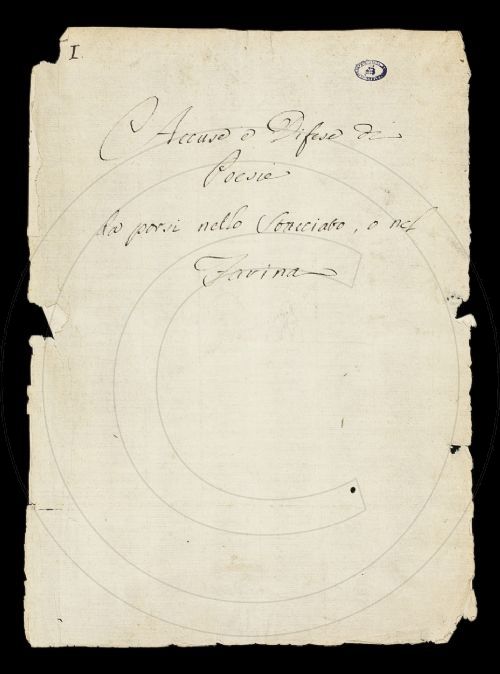 I
Accuse e Difese di
Poesie
da porsi nello Stacciato, o nel
Farina